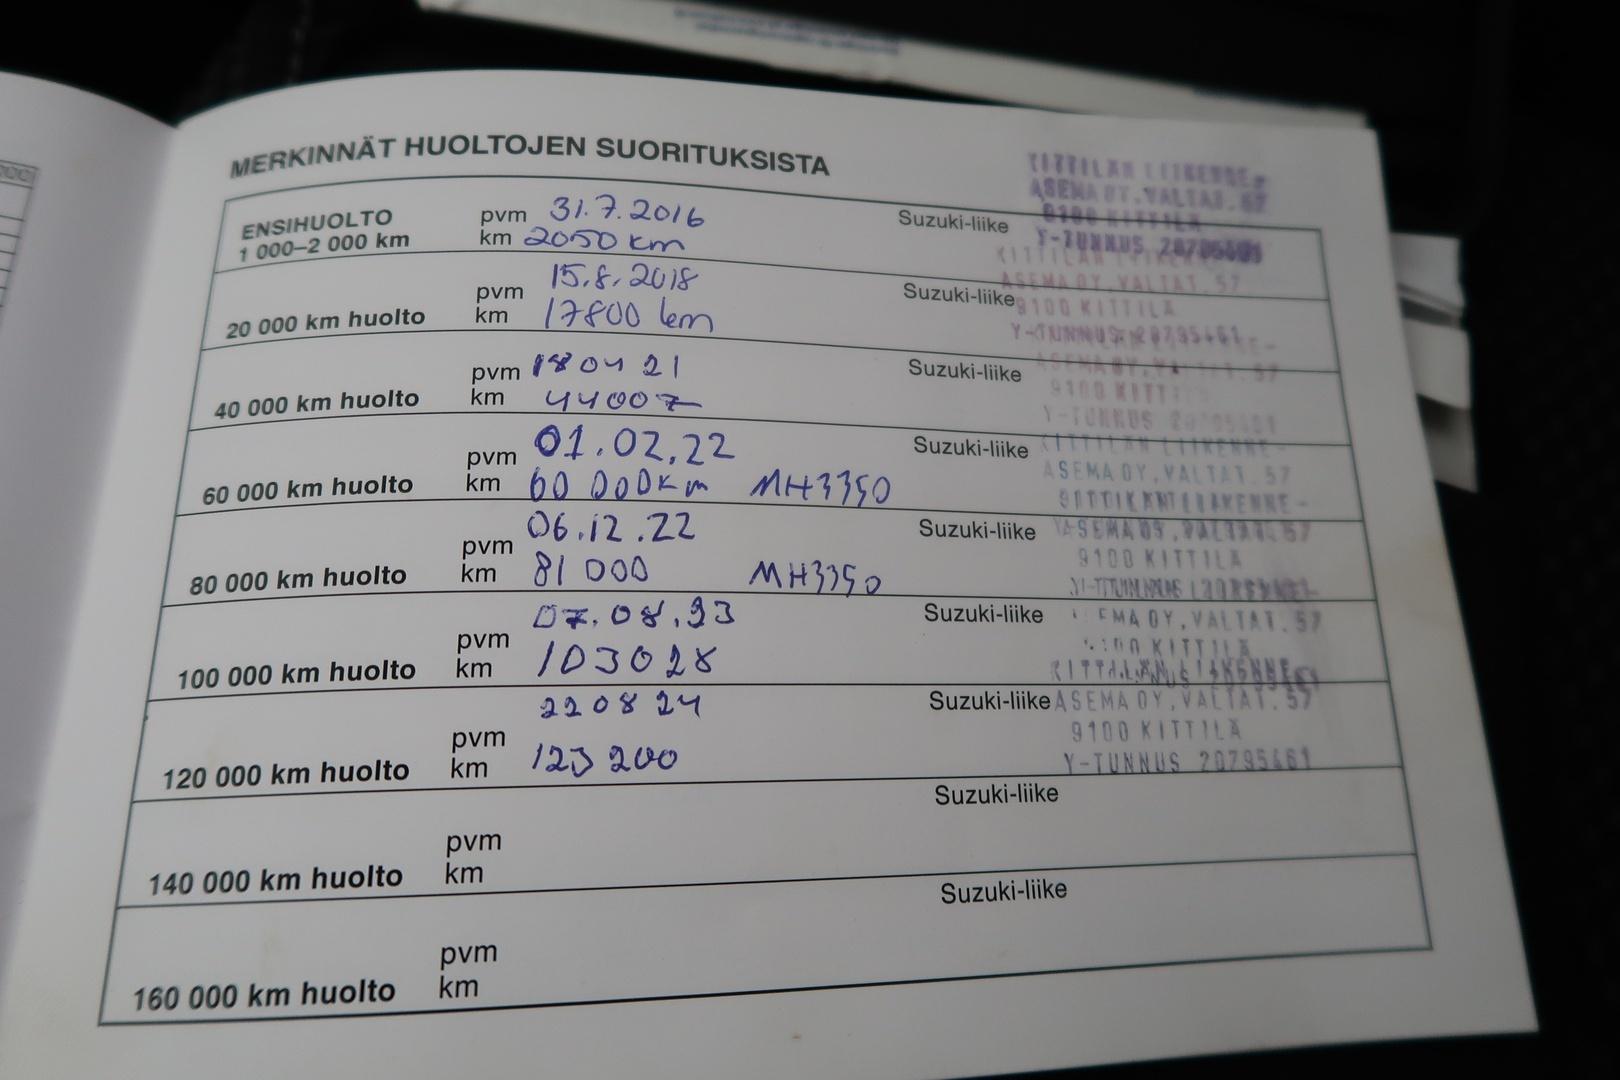 MERKINNÄT HUOLTOJEN SUORITUKSISTA
KITTILÄN LIIKENNE-
ASEMA OY, VALTAT. 57
9100 KITTILÄ
Y-TUNNUS 20795461
ENSIHUOLTO
1 000–2 000 km
pvm 31.7.2016
km 2050 km
Suzuki-liike
KITTILÄN LIIKENNE-
ASEMA OY, VALTAT. 57
9100 KITTILÄ
Y-TUNNUS 20795461
20 000 km huolto
pvm 15.8.2018
km 17800 km
Suzuki-liike
ASEMA OY, VALTAT. 57
9100 KITTILÄ
Y-TUNNUS 20795461
40 000 km huolto
pvm 18 04 21
km 44007
Suzuki-liike
KITTILÄN LIIKENNE-
ASEMA OY, VALTAT. 57
60 000 km huolto
pvm 01.02.22
km 60 000km MH3350
Suzuki-liike
ASEMA OY, VALTAT. 57
9100 KITTILÄ
80 000 km huolto
pvm 06.12.22
km 81 000 MH3350
Suzuki-liike
EMA OY, VALTAT. 57
KITTILÄ
100 000 km huolto
pvm 07.08.23
km 103028
Suzuki-liike
KITTILÄN LIIKENNE-
ASEMA OY, VALTAT. 57
9100 KITTILÄ
Y-TUNNUS 20795461
120 000 km huolto
pvm 22 08 24
km 123 200
Suzuki-liike
140 000 km huolto
pvm
km
Suzuki-liike
160 000 km huolto
pvm
km
Suzuki-liike